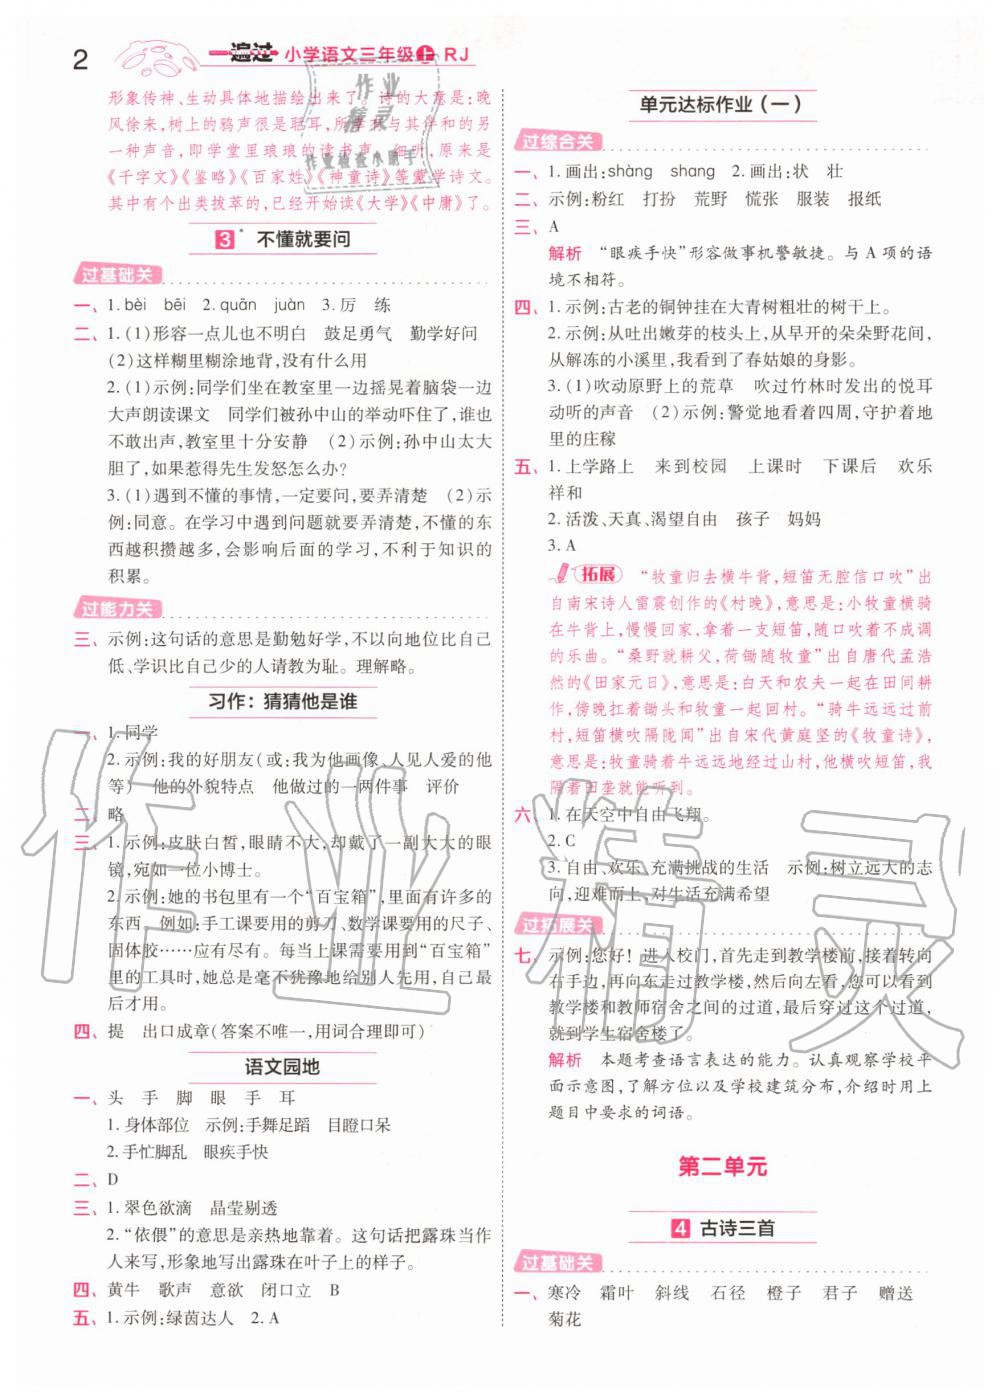 2
一遍过 小学语文三年级上·RJ
形象传神、生动具体地描绘出来了。诗的大意是:晚
风徐来,树上的鸦声很是聒耳,所幸有与其伴和的另
一种声音,即学堂里琅琅的读书声。细听,原来是
《千字文》《鉴略》《百家姓》《神童诗》等蒙学诗文。
其中有个出类拔萃的,已经开始读《大学》《中庸》了。
3* 不懂就要问
过基础关
一、1. bèi bēi 2. quān juàn 3. 厉 练
二、1. (1)形容一点儿也不明白 鼓足勇气 勤学好问
(2)这样糊里糊涂地背,没有什么用
2. (1)示例:同学们坐在教室里一边摇晃着脑袋一边
大声朗读课文 同学们被孙中山的举动吓住了,谁也
不敢出声,教室里十分安静 (2)示例:孙中山太大
胆了,如果惹得先生发怒怎么办?
3. (1)遇到不懂的事情,一定要问,要弄清楚 (2)示
例:同意。在学习中遇到问题就要弄清楚,不懂的东
西越积攒越多,会影响后面的学习,不利于知识的
积累。
过能力关
三、示例:这句话的意思是勤勉好学,不以向地位比自己
低、学识比自己少的人请教为耻。理解略。
习作:猜猜他是谁
一、1. 同学
2. 示例:我的好朋友(或:我为他画像 人见人爱的他
等) 他的外貌特点 他做过的一两件事 评价
二、略
三、1. 示例:皮肤白皙,眼睛不大,却戴了一副大大的眼
镜,宛如一位小博士。
2. 示例:她的书包里有一个“百宝箱”,里面有许多的
东西 例如:手工课要用的剪刀、数学课要用的尺子、
固体胶……应有尽有。每当上课需要用到“百宝箱”
里的工具时,她总是毫不犹豫地给别人先用,自己最
后才用。
四、提 出口成章(答案不唯一,用词合理即可)
语文园地
一、头 手 脚 眼 手 耳
1. 身体部位 示例:手舞足蹈 目瞪口呆
2. 手忙脚乱 眼疾手快
二、D
三、1. 翠色欲滴 晶莹剔透
2. “依偎”的意思是亲热地靠着。这句话把露珠当作
人来写,形象地写出露珠在叶子上的样子。
四、黄牛 歌声 意欲 闭口立 B
五、1. 示例:绿茵达人 2. A
单元达标作业(一)
过综合关
一、1. 画出:shàng shang 2. 画出:状 壮
二、示例:粉红 打扮 荒野 慌张 服装 报纸
三、A
解析 “眼疾手快”形容做事机警敏捷。与 A 项的语
境不相符。
四、1. 示例:古老的铜钟挂在大青树粗壮的树干上。
2. 示例:从吐出嫩芽的枝头上,从早开的朵朵野花间,
从解冻的小溪里,我们都看到了春姑娘的身影。
3. (1)吹动原野上的荒草 吹过竹林时发出的悦耳
动听的声音 (2)示例:警觉地看着四周,守护着地
里的庄稼
五、1. 上学路上 来到校园 上课时 下课后 欢乐
祥和
2. 活泼、天真、渴望自由 孩子 妈妈
3. A
拓展 “牧童归去横牛背,短笛无腔信口吹”出
自南宋诗人雷震创作的《村晚》,意思是:小牧童横骑
在牛背上,慢慢回家,拿着一支短笛,随口吹着不成调
的乐曲。“桑野就耕父,荷锄随牧童”出自唐代孟浩
然的《田家元日》,意思是:白天和农夫一起在田间耕
作,傍晚扛着锄头和牧童一起回村。“骑牛远远过前
村,短笛横吹隔陇闻”出自宋代黄庭坚的《牧童诗》,
意思是:牧童骑着牛远远地经过山村,他横吹短笛,我
隔着田垄就能听到。
六、1. 在天空中自由飞翔。
2. C
3. 自由、欢乐、充满挑战的生活 示例:树立远大的志
向,迎难而上,对生活充满希望
过拓展关
七、示例:您好!进入校门,首先走到教学楼前,接着转向
右手边,再向东走过教学楼,然后向左看,您可以看到
教学楼和教师宿舍之间的过道,最后穿过这个过道,
就到学生宿舍楼了。
解析 本题考查语言表达的能力。认真观察学校平
面示意图,了解方位以及学校建筑分布,介绍时用上
题目中要求的词语。
第二单元
4 古诗三首
过基础关
一、寒冷 霜叶 斜线 石径 橙子 君子 赠送
菊花
作业精灵
作业检查小助手
作业精灵